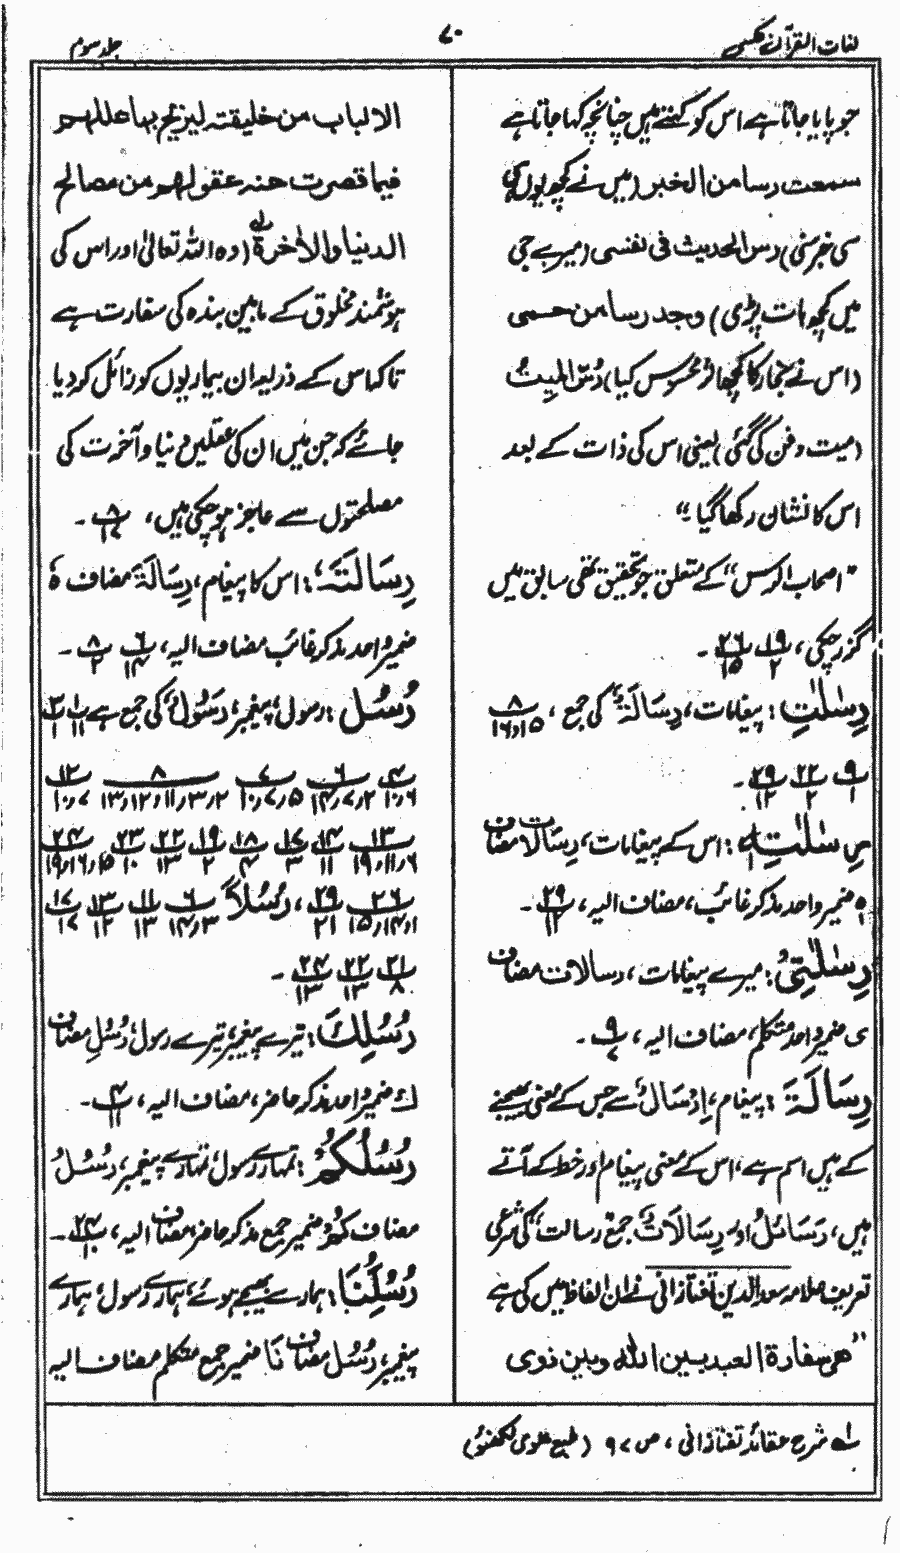 لغات القرآن مکمل
۷۰
جلد سوم
جو پایا جاتا ہے اس کو کہتے ہیں چنانچہ کہا جاتا ہے
سمعت رسا من الخبر (میں نے کچھ یوں ہی
سی خبر سنی) رس الحدیث فی نفسی (میرے جی
میں کچھ بات پڑی) وجد رسا من حمی
(اس نے بخار کا کچھ اثر محسوس کیا) رُسّ المیتُ
(میت دفن کی گئی) یعنی اس کی ذات کے بعد
اس کا نشان رکھا گیا ۔"
"اصحاب الرس" کے متعلق جو تحقیق تھی سابق میں
گزر چکی، ۱۹/۲، ۲۶/۱۵ ۔
رِسٰلٰتِ : پیغامات، رِسَالَةٌ کی جمع ، ۸/۱۵و۱۶
۹/۱ ۲۲/۲ ۲۹/۱۲ ۔
رِسٰلٰتِہٖ : اس کے پیغامات، رِسَالَات مضاف
ہ ضمیر واحد مذکر غائب، مضاف الیہ، ۲۹/۱۲ ۔
رِسٰلٰتِیْ : میرے پیغامات، رسالات مضاف
ی ضمیر واحد متکلم، مضاف الیہ ، ۹/۷ ۔
رِسَالَةَ : پیغام، اِرْسَالٌ سے جس کے معنی بھیجنے
کے ہیں اسم ہے، اس کے معنی پیغام اور خط کے آتے
ہیں، رَسَائِلُ اور رِسَالَاتٌ جمع، رسالت کی شرعی
تعریف علامہ سعد الدین تفتازانی نے ان الفاظ میں کی ہے
"ھی سفارۃ العبد بین اللہ و بین ذوی
الالباب من خلیقتہ لیزیح بہا عللہم
فیما قصرت عنہ عقولہم من مصالح
الدنیا والاٰخرۃ لہ (وہ اللہ تعالیٰ اور اس کی
ہوشمند مخلوق کے مابین بندہ کی سفارت ہے
تاکہ اس کے ذریعہ ان بیماریوں کو زائل کر دیا
جائے کہ جن میں ان کی عقلیں دنیا و آخرت کی
مصلحتوں سے عاجز ہو چکی ہیں، ۸/۱۷ ۔
رِسَالَتَہٗ : اس کا پیغام، رِسَالَةَ مضاف ہٗ
ضمیر واحد مذکر غائب مضاف الیہ، ۶/۱۴ ۸/۲ ۔
رُسُل : رسول، پیغمبر، رَسُوْلٌ کی جمع ہے ۱/۱۱ ۳/۱
۴/۱۰،۶ ۶/۲،۷،۱۴ ۷/۵،۷،۱۰ ۸/۲،۳،۱۱،۱۲،۱۳ ۱۲/۷،۱۰
۱۳/۶،۱۱،۱۹ ۱۴/۱۱ ۱۷/۳ ۱۸/۴ ۱۹/۲ ۲۲/۱۳ ۲۳/۱۰ ۲۴/۱۵،۱۶،۱۹
۲۶/۱،۱۴،۱۵ ۲۹/۲۱، رُسُلاً ۶/۳،۱۴ ۱۱/۱۳ ۱۳/۱۲ ۱۷/۱۷
۲۱/۸ ۲۲/۱۳ ۲۴/۱۳ ۔
رُسُلِكَ : تیرے پیغمبر، تیرے رسول، رُسُلِ مضاف
كَ ضمیر واحد مذکر حاضر، مضاف الیہ ، ۴/۱۱ ۔
رُسُلُكُمْ : تمہارے رسول، تمہارے پیغمبر، رُسُلُ
مضاف كُمْ ضمیر جمع مذکر حاضر، مضاف الیہ، ۲۴/۱۰ ۔
رُسُلُنَا : ہمارے بھیجے ہوئے، ہمارے رسول، ہمارے
پیغمبر، رُسُل مضاف نَا ضمیر جمع متکلم مضاف الیہ
لہ شرح عقائد تفتازانی ، ص ۹۷ (طبع علوی لکھنؤ)